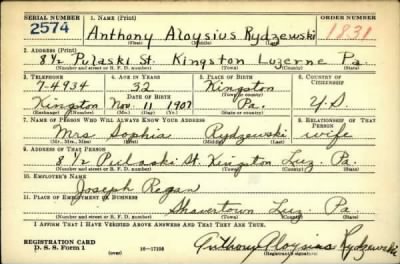 SERIAL NUMBER 1. NAME (Print) ORDER NUMBER
2574 Anthony Aloysius Rydzewski 1831
(First) (Middle) (Last)
2. ADDRESS (Print)
8½ Pulaski St. Kingston Luzerne Pa.
(Number and street or R. F. D. number) (Town) (County) (State)
3. TELEPHONE 4. AGE IN YEARS 5. PLACE OF BIRTH 6. COUNTRY OF CITIZENSHIP
7-4934 32 Kingston
DATE OF BIRTH
Kingston Nov. 11 1907 Pa. U.S.
(Exchange) (Number) (Mo.) (Day) (Yr.) (State or country)
7. NAME OF PERSON WHO WILL ALWAYS KNOW YOUR ADDRESS 8. RELATIONSHIP OF THAT PERSON
Mrs Sophia Rydzewski wife
(Mr., Mrs., Miss) (First) (Middle) (Last)
9. ADDRESS OF THAT PERSON
8 1/2 Pulaski St. Kingston Luz. Pa.
(Number and street or R. F. D. number) (Town) (County) (State)
10. EMPLOYER'S NAME
Joseph Regan
11. PLACE OF EMPLOYMENT OR BUSINESS
Shavertown Luz. Pa.
(Number and street or R. F. D. number) (Town) (County) (State)
I AFFIRM THAT I HAVE VERIFIED ABOVE ANSWERS AND THAT THEY ARE TRUE.
REGISTRATION CARD
D. S. S. Form 1 (over) 16-17105 Anthony Aloysius Rydzewski
(Registrant's signature)